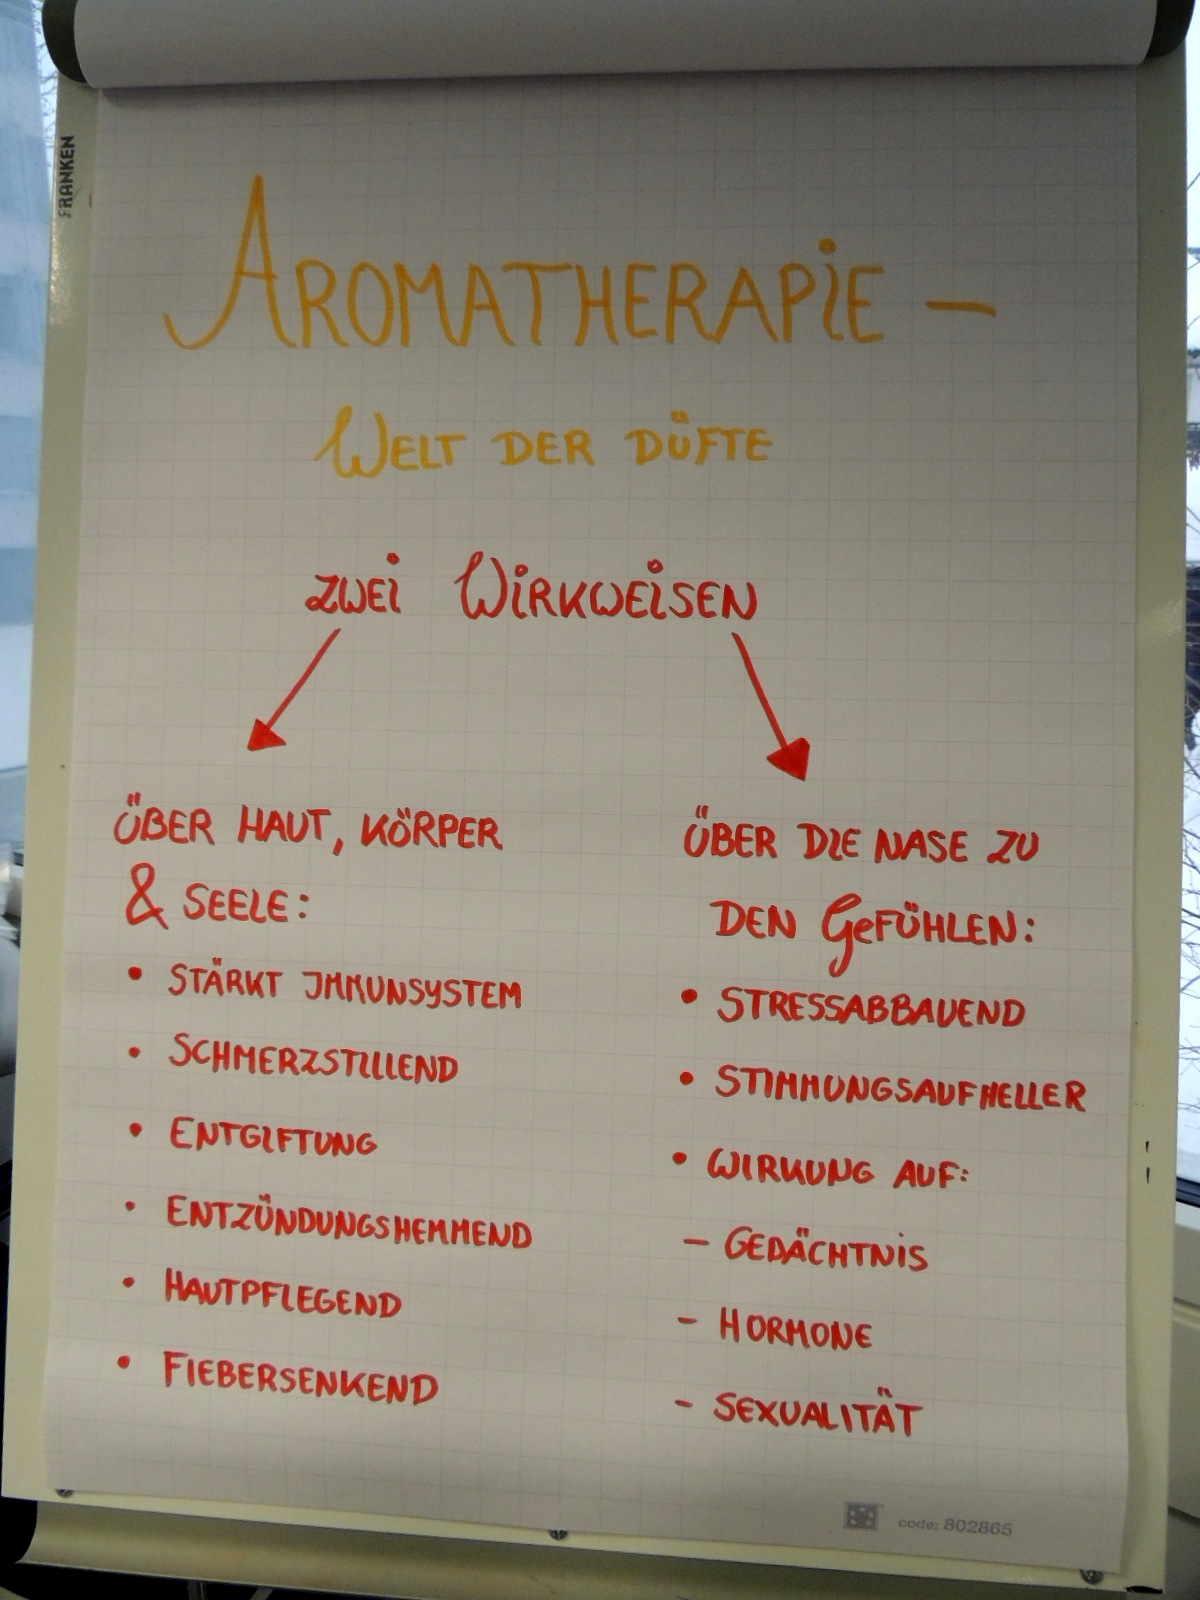 FRANKEN
AROMATHERAPIE –
WELT DER DÜFTE
ZWEI WIRKWEISEN
ÜBER HAUT, KÖRPER
& SEELE:
• STÄRKT IMMUNSYSTEM
• SCHMERZSTILLEND
• ENTGIFTUNG
• ENTZÜNDUNGSHEMMEND
• HAUTPFLEGEND
• FIEBERSENKEND
ÜBER DIE NASE ZU
DEN GEFÜHLEN:
• STRESSABBAUEND
• STIMMUNGSAUFHELLER
• WIRKUNG AUF:
– GEDÄCHTNIS
– HORMONE
– SEXUALITÄT
code: 802865